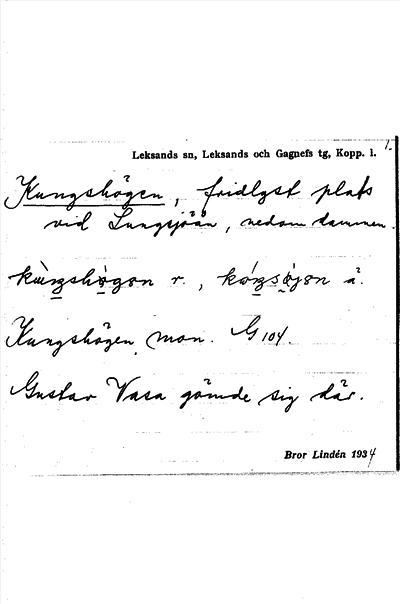 1.
Leksands sn, Leksands och Gagnefs tg, Kopp. l.
Kungshögen, fridlyst plats
vid Lungsjöån, nedom dammen.
r., å.
Kungshögen, mon. G 104.
Gustav Vasa gömde sig där.
Bror Lindén 1934